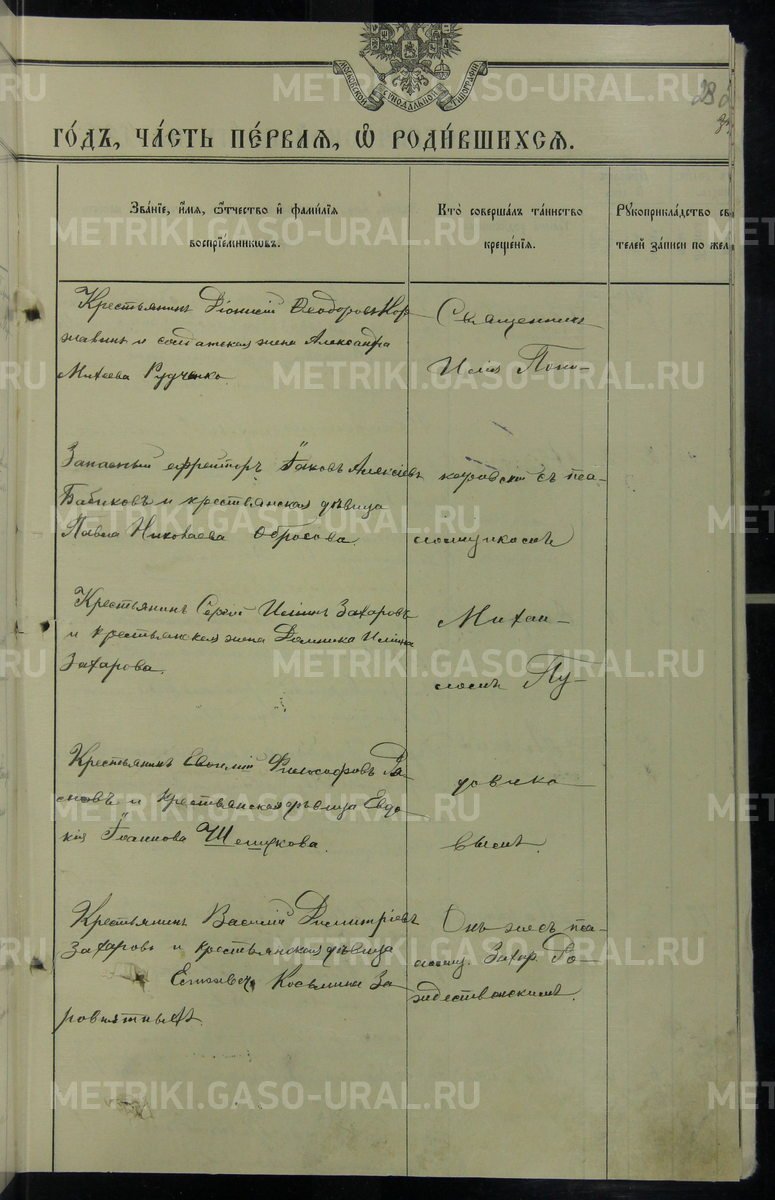 МОСКОВСКОЙ СѴНОДАЛЬНОЙ ТИПОГРАФІИ
28
ГО́ДЪ, ЧА́СТЬ ПЕ́РВАѦ, Ѡ҆ РОДИ́ВШИХСѦ.
Зва́нїе, и҆́мѧ, ѻ҆́тчество и҆ фами́лїѧ
воспрїе́мникѡвъ.
Кто̀ соверша́лъ та́инство
креще́нїѧ.
Рꙋкоприкла́дство сви
телей за́писи по жел
Крестьянинъ Діонисій Ѳеодоровъ Кор-
жавинъ и солдатская жена Александра
Михеева Рудченко.
Священникъ
Илія Поно-
Запасный ефрейторъ Іаковъ Алексіевъ
Бабиковъ и крестьянская дѣвица
Павла Николаева Обросова.
маревскій съ пса-
ломщикомъ
Крестьянинъ Сергій Иліинъ Захаровъ
и крестьянская жена Домника Иліина
Захарова.
Михаи-
ломъ Пу-
Крестьянинъ Евгеній Философовъ
сковъ и крестьянская дѣвица Евдо-
кія Іоаннова Шешукова.
довико-
вымъ.
Крестьянинъ Василій Димитріевъ
Захаровъ и крестьянская дѣвица
Елизавета Косьмина За
ровнятныхъ.
Онъ же съ пса-
ломщ. Захар. Ро-
ждественскимъ.
METRIKI.GASO-URAL.RU